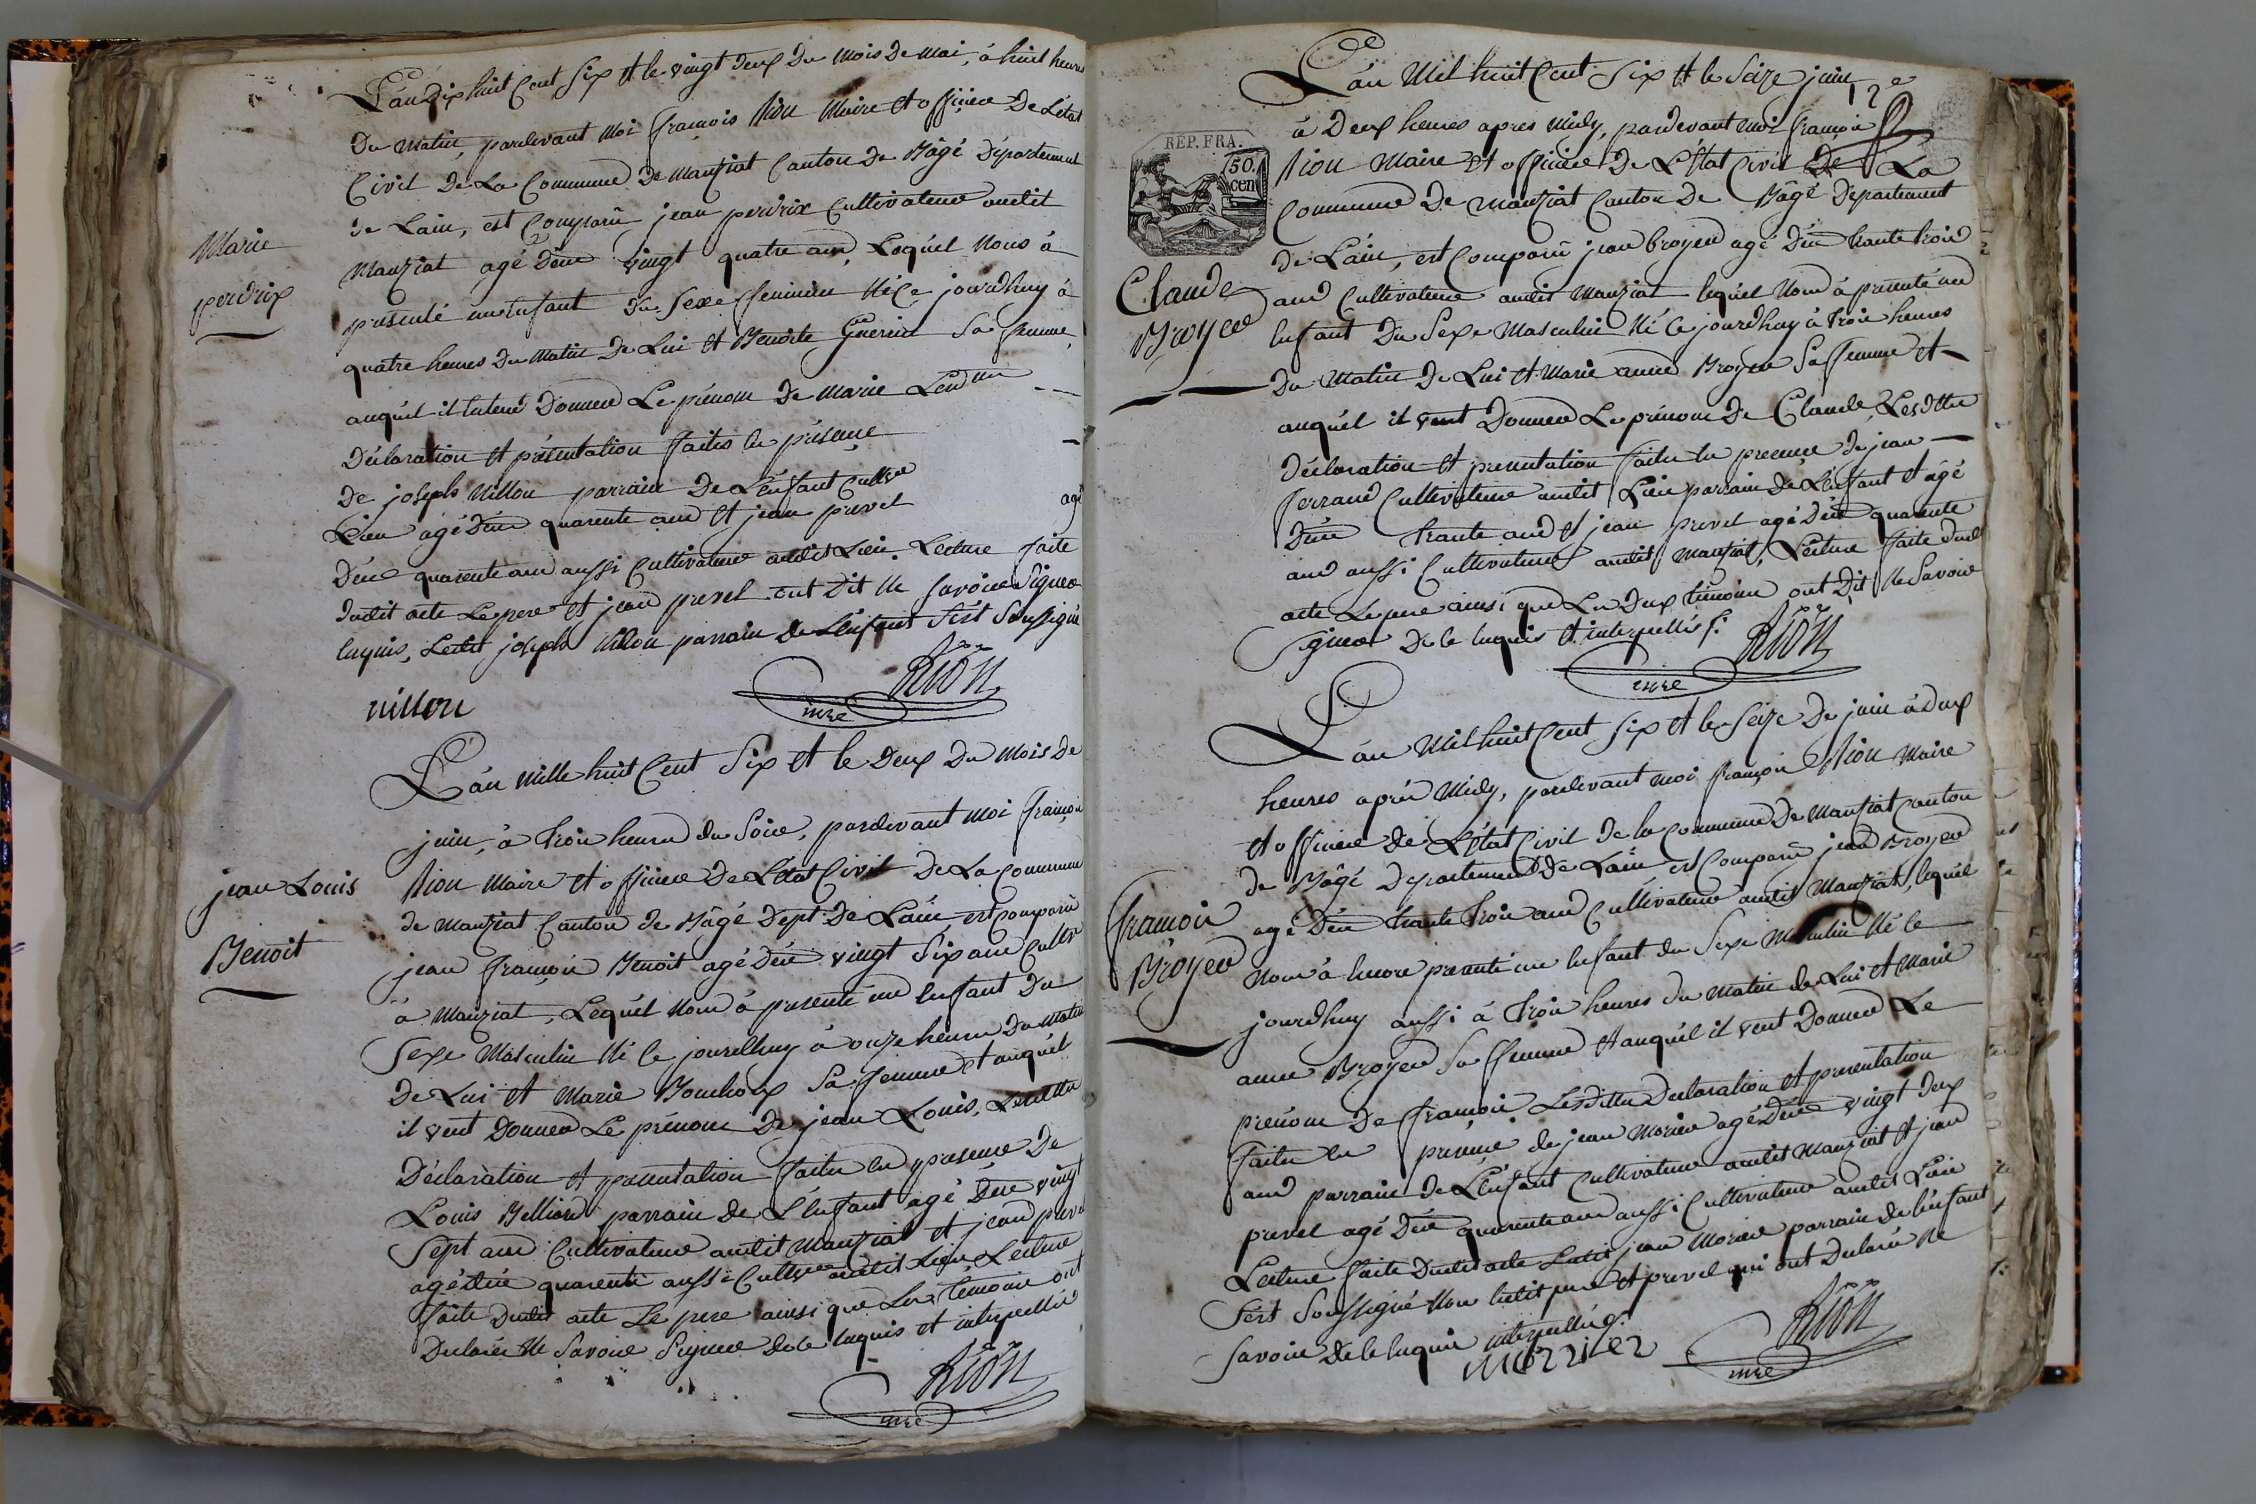 L'an Dix huit Cent Six et le vingt deux du mois de mai, à huit heures
Du matin, pardevant moi françois Rion Maire et officier De L'état
Civil De La Commune De manziat Canton De Bâgé Département
de Lain, est Comparu jean perdrix Cultivateur audit
Manziat agé D'en vingt quatre ans, Lequel Nous à
presenté un Enfant du Sexe ffeminin Né Ce jourdhuy à
quatre heures Du Matin De Lui et Benoite Guerin Sa femme,
auquel il entend Donner Le prénom De Marie
Déclaration et présentation faites en présence
De joseph Nillon parrain De L'enfant
Lieu agé D'en quarente ans et jean prevel agé
D'en quarente ans aussi Cultivateur audit Lieu. Lecture faite
Dudit acte Le pere et jean prevel ont Dit Ne Savoir Signer
Enquis, Ledit joseph Nillon parrain de L'enfant s'est Soussigné
Marie
perdrix
nillon
Rion
mre
L'an Mille huit Cent Six et le Deux Du Mois De
juin, à trois heures du Soir, pardevant Moi françois
Rion Maire et officier De L'état Civil De La Commune
de Manziat Canton de Bâgé Dept De L'ain est Comparu
jean françois Benoit agé D'en vingt Six ans Cultr
à Manziat, Lequel Nous à presenté un Enfant Du
Sexe Masculin Né Ce jourdhuy à onze heures Du Matin
De Lui et Marie Bouchoux Sa femme et auquel
il veut Donner Le prénom De jean Louis, Lesdittes
Déclaration et presentation faites en presence De
Louis Belliard parrain de L'enfant agé D'en vingt
Sept ans Cultivateur audit Manziat et jean prevel
agé D'en quarente aussi Cultivr audit Lieu, Lecture
faite Dudit acte Le pere ainsi que Les temoins ont
Declaré Ne Savoir Signer de ce Enquis et interpellés
jean Louis
Benoit
Rion
mre
12e
L'an Mil huit Cent Six et le Seize juin
à Deux heures apres Midy, pardevant moi françois
Rion Maire et officier De L'état Civil De La
Commune De Manziat Canton De Bâgé Departement
De L'ain, est Comparu jean Broyer agé D'en trante trois
ans Cultivateur audit Manziat lequel Nous à presenté un
Enfant Du Sexe Masculin Né Ce jourdhuy à trois heures
Du Matin De Lui et Marie anne Broyer Sa femme et
auquel il veut Donner Le prénom De Claude, Lesdittes
Déclaration et presentation faites en presence de jean
ferrand Cultivateur audit Lieu parrain de L'enfant et âgé
D'en trante ans et jean prevel agé D'en quarente
ans aussi Cultivateur audit Manziat, Lecture faite dud
acte Le pere ainsi que Les Deux temoins ont Dit Ne Savoir
Signer De Ce Enquis et interpellés
REP. FRA.
50.
cen
Claude
Broyer
Rion
mre
L'an Mil huit Cent Six et le Seize De juin à deux
heures après Midy, pardevant moi françois Rion Maire
et officier de L'état Civil De la Commune De Manziat Canton
de Bâgé Departement de Lain est Comparu jean Broyer
agé D'en trante trois ans Cultivateur audit Manziat, lequel
Nous à Encore presenté un Enfant du Sexe Masculin Né Ce
jourdhuy aussi à trois heures du Matin de Lui et Marie
anne Broyer Sa ffemme et auquel il veut Donner Le
prénom De françois, Lesdittes Declaration et presentation
faites en presence de jean Morier agé D'en vingt deux
ans parrain De L'enfant Cultivateur audit Manziat et jean
prevel agé D'en quarente ans aussi Cultivateur audit Lieu
Lecture faite Dudit acte Ledit jean Morier parrain de L'enfant
s'est Soussigné Non Ledit pere et prevel qui ont Declaré Ne
Savoir de ce Enquis interpellés.
françois
Broyer
morrier
Rion
mre